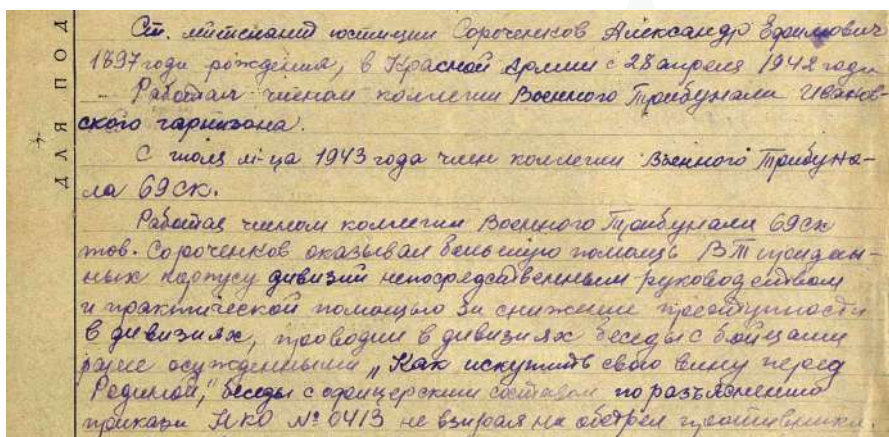 Ст. лейтенант юстиции Сороченков Александр Ефимович
1897 года рождения, в Красной Армии с 28 апреля 1942 года
Работал членом коллегии Военного Трибунала Иванов-
ского гарнизона.
С июля м-ца 1943 года член коллегии Военного Трибуна-
ла 69 ск.
Работая членом коллегии Военного Трибунала 69 ск
тов. Сороченков оказывал большую помощь ВТ придан-
ных корпусу дивизий непосредственным руководством
и практической помощью за снижение преступности
в дивизиях, проводил в дивизиях беседы с бойцами
ранее осужденными „Как искупить свою вину перед
Родиной", беседы с офицерским составом по разъяснению
приказа НКО № 0413 не взирая на обстрел противника.
ДЛЯ ПОД